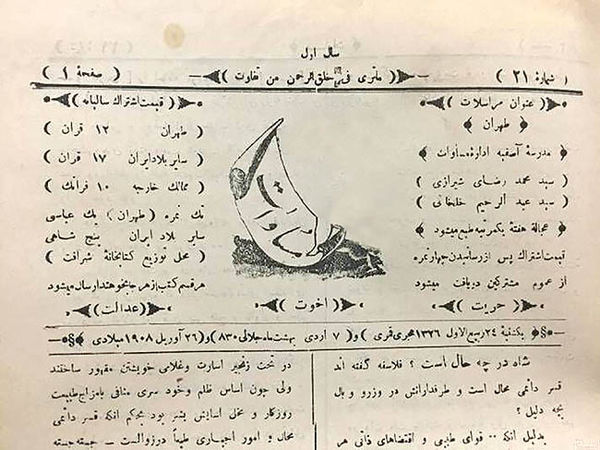 سال اول
( شمارهٔ ۲۱ )
( ماتری فی خلق الرحمن من تفاوت )
( صفحهٔ ۱ )
( عنوان مراسلات )
( طهران )
مدرسهٔ آصفیه ادارهٔ مساوات
( سید محمد رضای شیرازی )
( سید عبد الرحیم خلخالی )
( عجالة هفتهٔ یکمرتبه طبع میشود )
قیمت اشتراک پس از رسانیدن چهار نمره
از عموم مشترکین دریافت میشود
( حریت )
مساوات
( اخوت )
( قیمت اشتراک سالیانه )
( طهران ۱۲ قران )
( سایر بلاد ایران ۱۷ قران )
( ممالک خارجه ۱۰ فرانک )
تک نمره ( طهران ) یک عباسی
سایر بلاد ایران پنج شاهی
( محل توزیع کتابخانهٔ شرافت )
هر قسم کتب از هر جا بخواهند ارسال میشود
( عدالت )
یکشنبهٔ ۲۴ ربیع الاول ۱۳۲۶ هجری قمری ) و ( ۷ اردی بهشت ماه جلالی ۸۳۰ ) و ( ۲۶ آوریل ۱۹۰۸ میلادی
شاه در چه حال است ؟ فلاسفه گفته اند
قسر دائمی محال است و طرفدارانش در وزر و وبال
بچه دلیل ؟
بدلیل آنکه .. قوای طبیعی و اقتضاهای ذاتی هر
در تحت زنجیر اسارت وغلامی خویشتن مقهور ساختند
ولی چون اساس ظلم وخود سری منافی بامزاج طبیعت
روزگار و مخل آسایش بشر بود بحکم آنکه قسر دائمی
محال و امور اجباری طبعاً درزوالست — جسته جسته